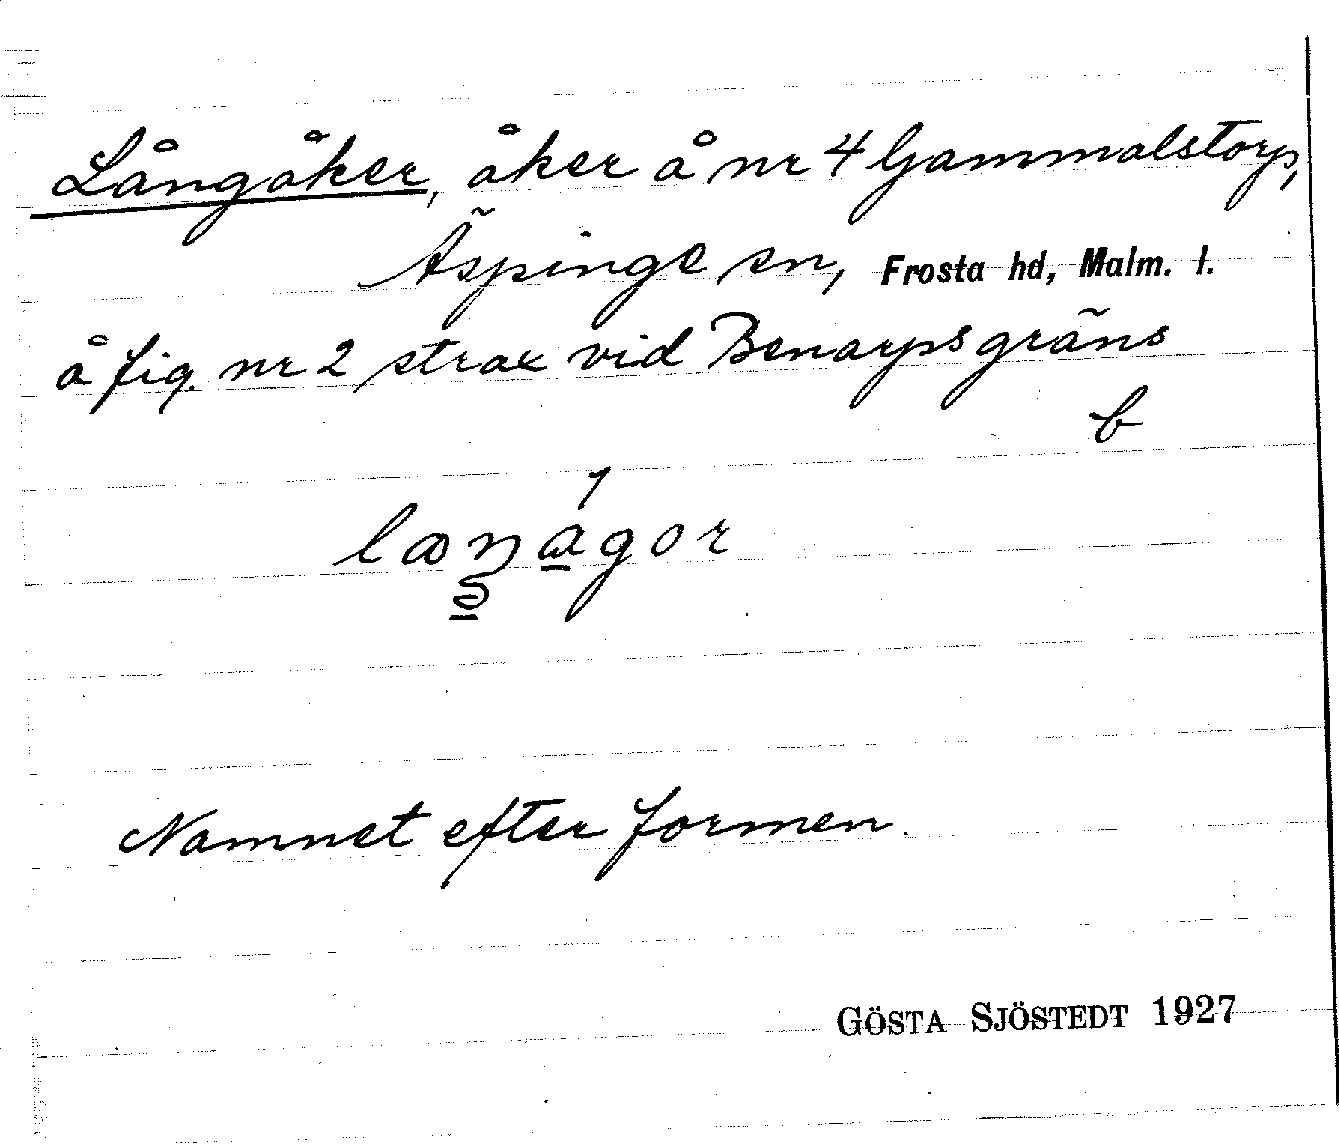 Långåker, åker å nr 4 Gammalstorp,
Äspinge sn, Frosta hd, Malm. l.
å fig. nr 2 strax vid Benarps gräns
b
Namnet efter formen.
GÖSTA SJÖSTEDT 1927